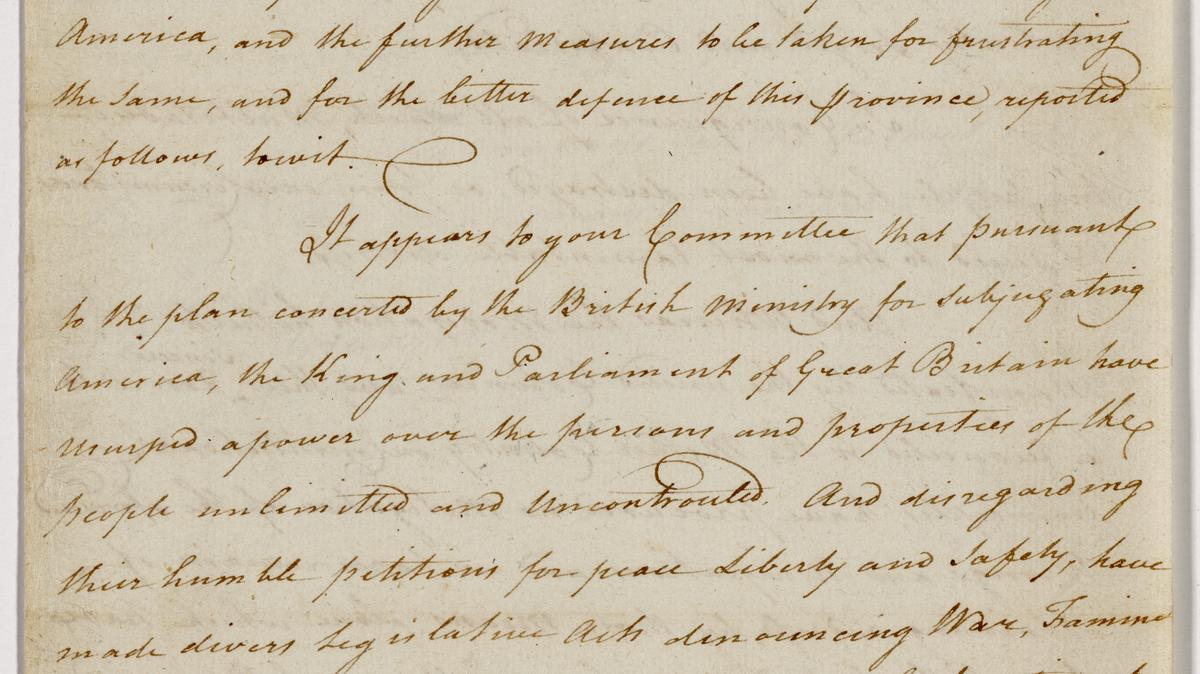 America, and the further measures to be taken for frustrating
the same, and for the better defence of this province, reported
as follows, towit.
It appears to your Committee that pursuant
to the plan concerted by the British Ministry for subjugating
America, the King and Parliament of Great Britain have
usurped a power over the persons and properties of the
people unlimitted and uncontrouled. And disregarding
their humble petitions for peace Liberty and safety, have
made divers Legislative Acts denouncing War, Famine